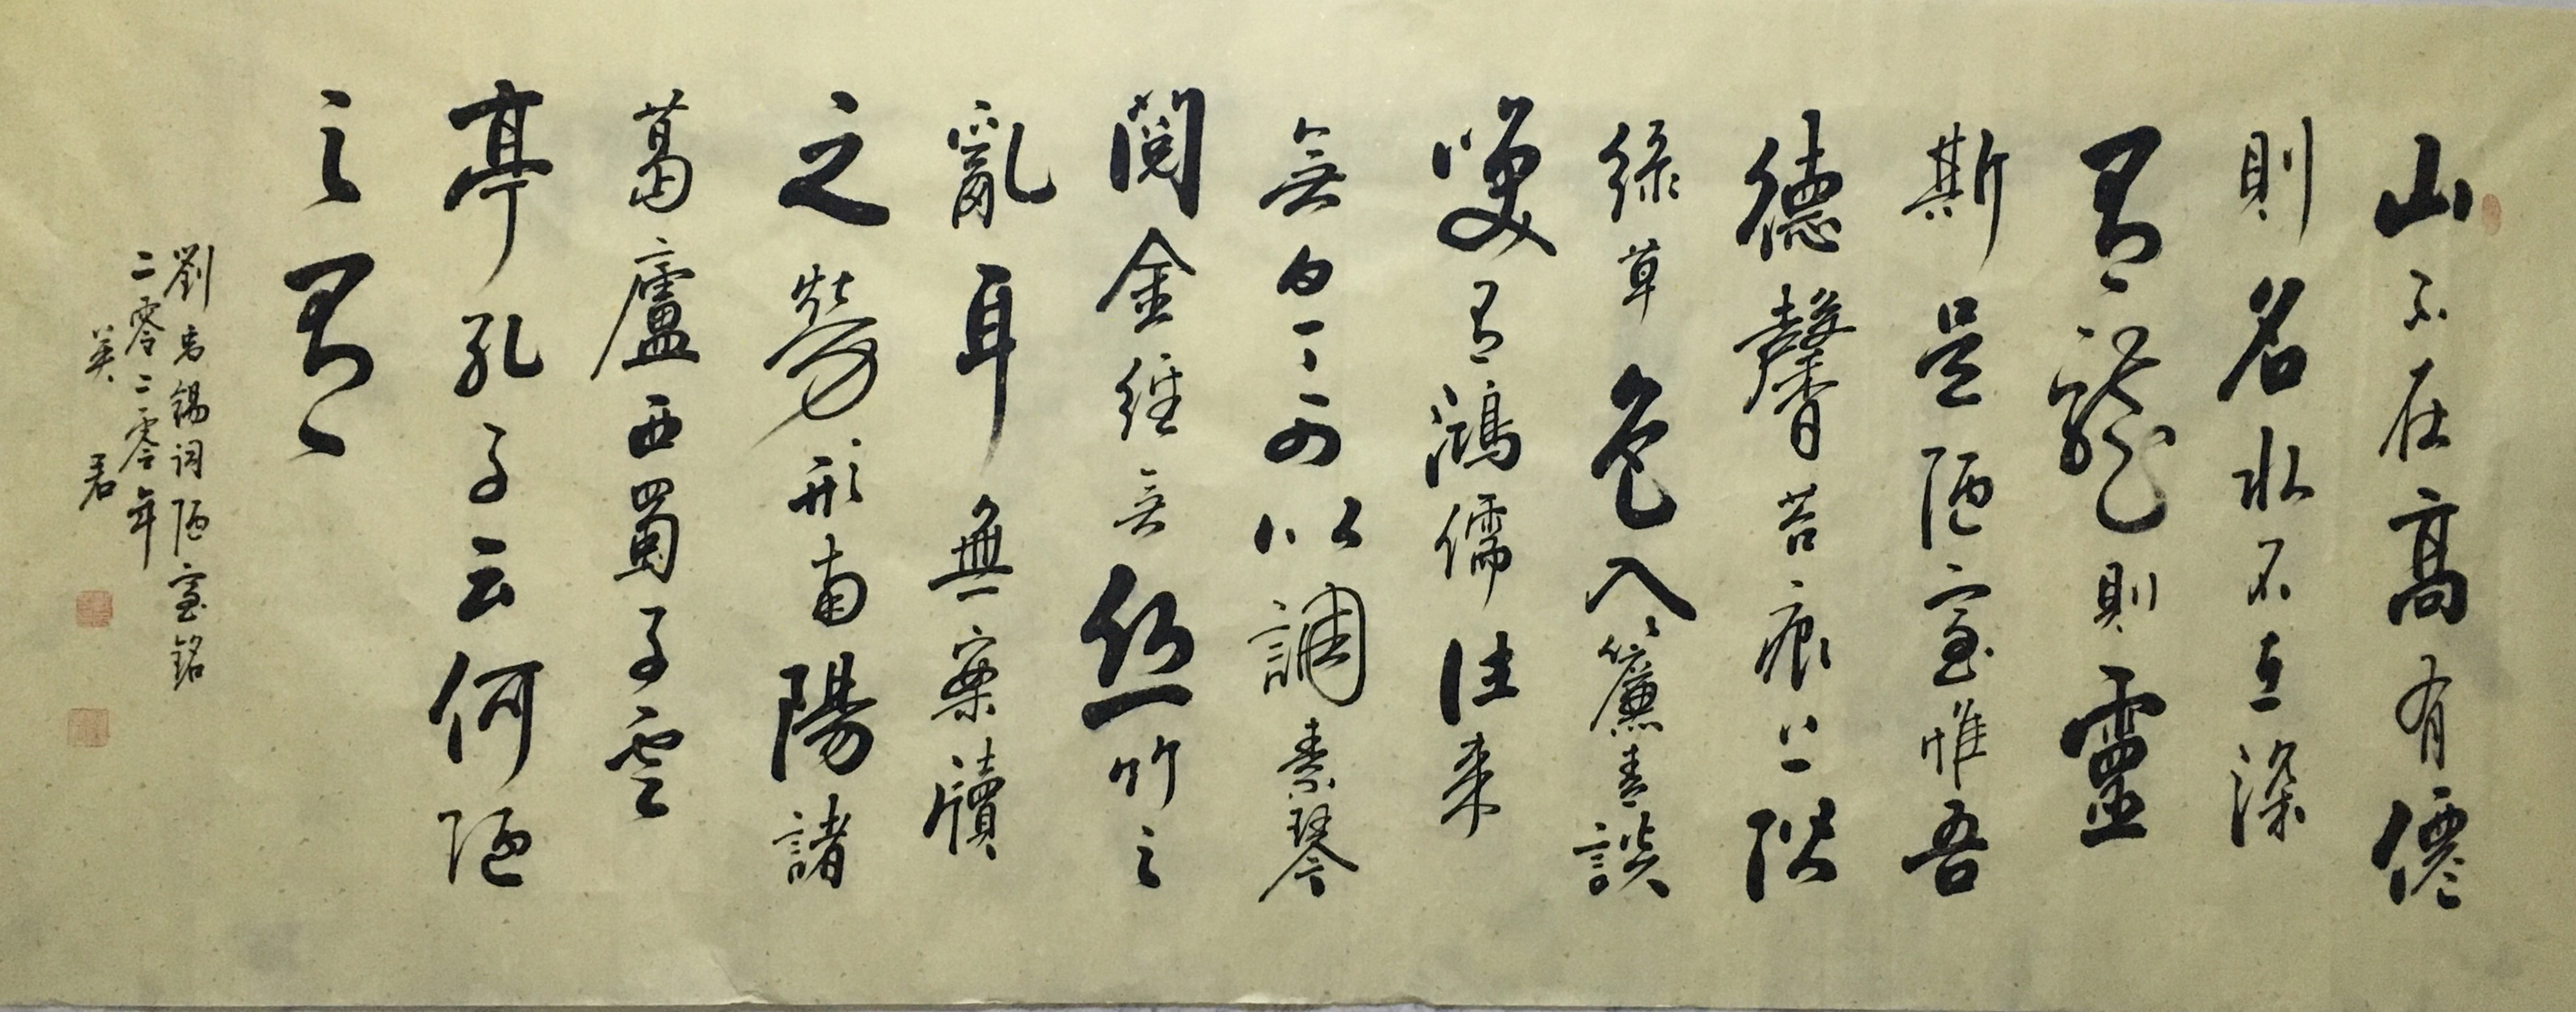 山不在高有僊
則名水不在深
有龍則靈
斯是陋室惟吾
德馨苔痕上階
綠草色入簾青談
笑有鴻儒往來
無白丁可以調素琴
閱金經無絲竹之
亂耳無案牘
之勞形南陽諸
葛廬西蜀子雲
亭孔子云何陋
之有
劉禹錫詞陋室銘
二零二零年
英君